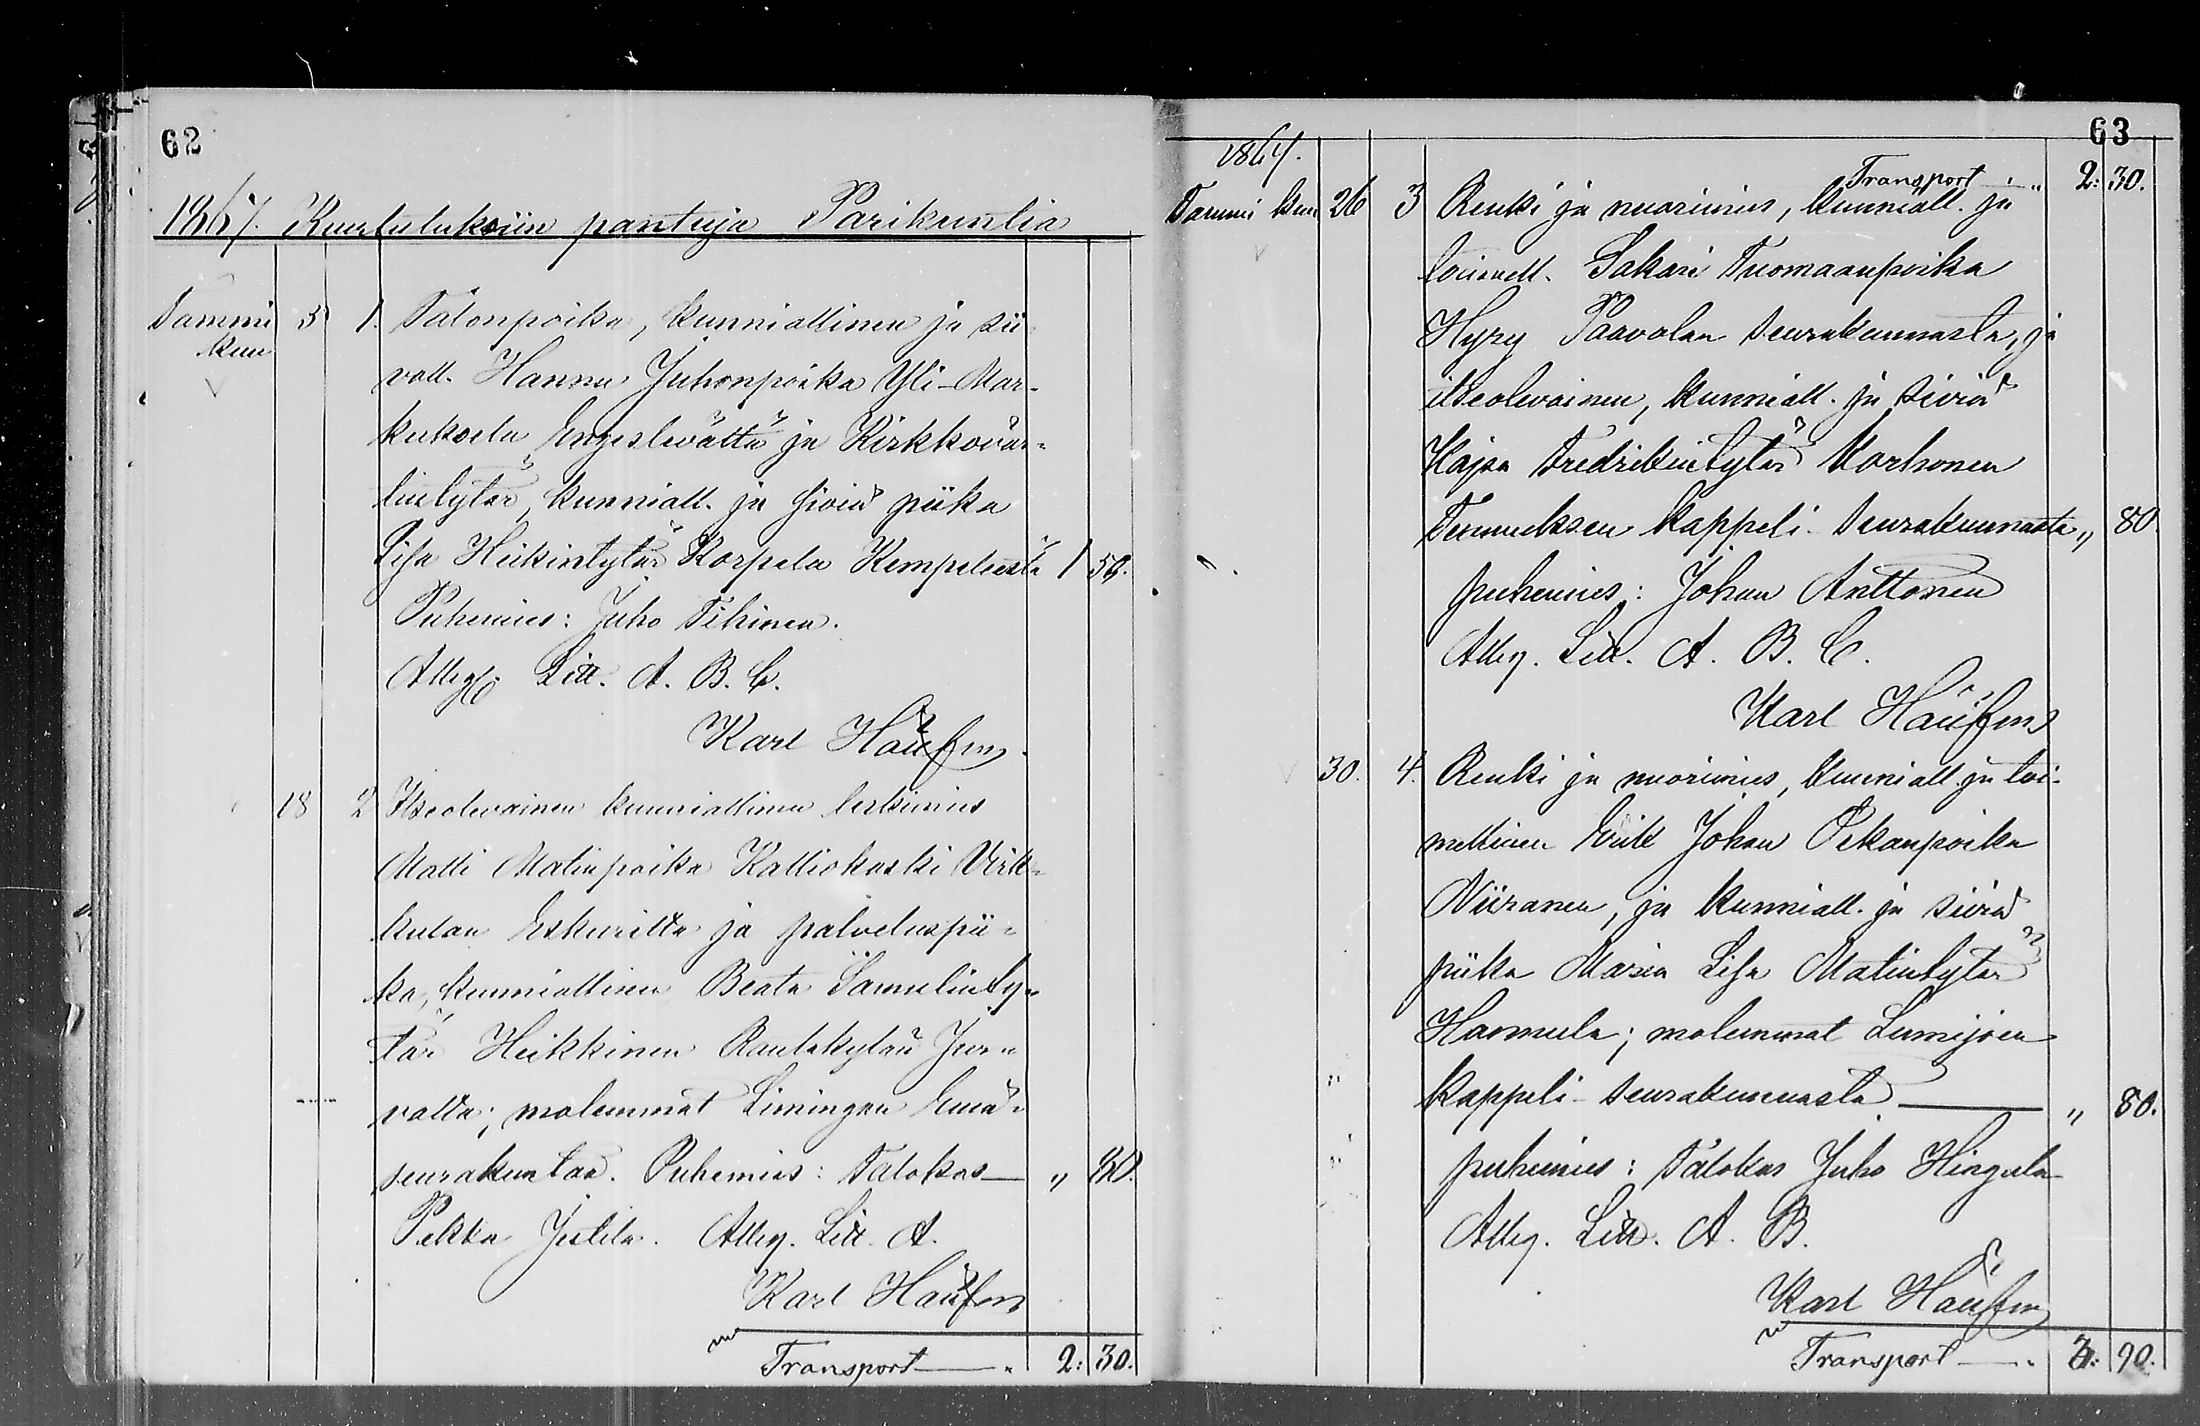 62
1867. Kuulutuksiin pantuja Parikuntia
Tammi 5 1. Talonpoika, kunniallinen ja sii-
kuu vall. Hannu Juhonpoika Yli-Mar-
kukoela Engeslevältä ja Kirkkovär-
tintytär, kunniall. ja siviä piika
Lisa Heikintytär Korpela Kempeleestä 1 50.
Puhemies: Juho Tihinen.
Alleg. Litt. A. B. C.
Karl Häuffen.
18 2 Itseolevainen kunniallinen leskimies
Matti Matinpoika Kalliokoski Virk-
kulan Eskurilta ja palveluspii-
ka, kunniallinen Beata Samulinty-
tär Heikkinen Rantakylän Jur-
valta; molemmat Limingan Emä-
seurakuntaa. Puhemies: Talokas — „ 80.
Pekka Jutila. Alleg. Litt. A.
Karl Häuffen
Transport — 2: 30.
63
1867. Transport — „ 2: 30.
Tammi kuu 26 3 Renki ja nuorimies, kunniall. ja
toimell. Sakari Tuomaanpoika
Hyry Paavolan seurakunnasta, ja
itseolevainen, kunniall. ja siviä
Kajsa Fredrikintytär Korhonen
Temmeksen kappeli-seurakunnasta „ 80.
puhemies: Johan Anttonen
Alleg. Litt. A. B. C.
Karl Häuffen
30. 4. Renki ja nuorimies, kunniall. ja toi-
mellinen Erik Johan Pekanpoika
Niiranen, ja kunniall. ja siviä
piika Maria Lisa Matintytär
Haomula; molemmat Lumijoen
kappeli-seurakunnasta — „ 80.
puhemies: Talokas Juho Hingula
Alleg. Litt. A. B.
Karl Häuffen
Transport — 3: 90.